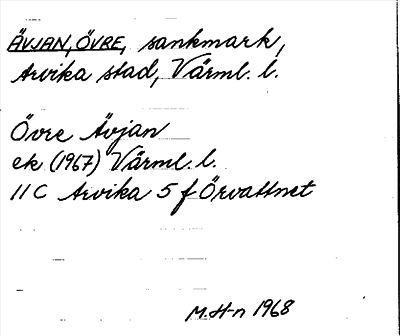 ÄVJAN, ÖVRE, sankmark,
Arvika stad, Värml. l.
Övre Ävjan
ek (1967) Värml. l.
11 C Arvika 5 f Örvattnet
M.H-n 1968